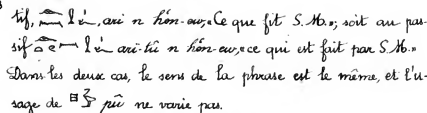 tif, ari n ḥôn-ew, «Ce que fit S. M.»; soit au pas-
sif ari-tû n ḥôn-ew, «ce qui est fait par S. M.»
Dans les deux cas, le sens de la phrase est le même, et l'u-
sage de pû ne varie pas.